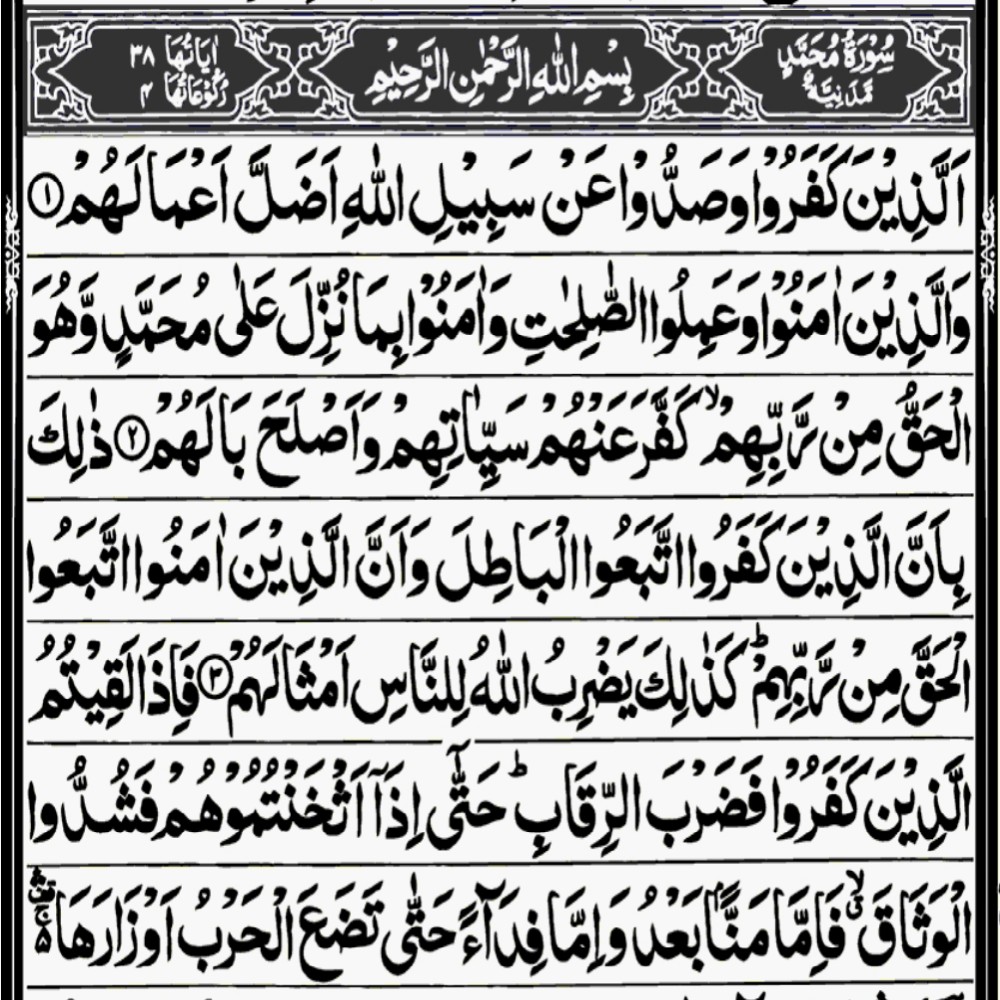 سُوْرَةُ مُحَمَّدٍ مَّدَنِيَّةٌ بِسْمِ اللّٰهِ الرَّحْمٰنِ الرَّحِيْمِ اٰيَاتُهَا ٣٨ رُكُوْعَاتُهَا ٤
اَلَّذِيْنَ كَفَرُوْا وَصَدُّوْا عَنْ سَبِيْلِ اللّٰهِ اَضَلَّ اَعْمَالَهُمْ ۝١
وَالَّذِيْنَ اٰمَنُوْا وَعَمِلُوا الصّٰلِحٰتِ وَاٰمَنُوْا بِمَا نُزِّلَ عَلٰى مُحَمَّدٍ وَّهُوَ
الْحَقُّ مِنْ رَّبِّهِمْ ۙ كَفَّرَ عَنْهُمْ سَيِّاٰتِهِمْ وَاَصْلَحَ بَالَهُمْ ۝٢ ذٰلِكَ
بِاَنَّ الَّذِيْنَ كَفَرُوا اتَّبَعُوا الْبَاطِلَ وَاَنَّ الَّذِيْنَ اٰمَنُوا اتَّبَعُوا
الْحَقَّ مِنْ رَّبِّهِمْ ؕ كَذٰلِكَ يَضْرِبُ اللّٰهُ لِلنَّاسِ اَمْثَالَهُمْ ۝٣ فَاِذَا لَقِيْتُمُ
الَّذِيْنَ كَفَرُوْا فَضَرْبَ الرِّقَابِ ؕ حَتّٰٓى اِذَآ اَثْخَنْتُمُوْهُمْ فَشُدُّوا
الْوَثَاقَ ۙ فَاِمَّا مَنًّاۢ بَعْدُ وَاِمَّا فِدَآءً حَتّٰى تَضَعَ الْحَرْبُ اَوْزَارَهَا